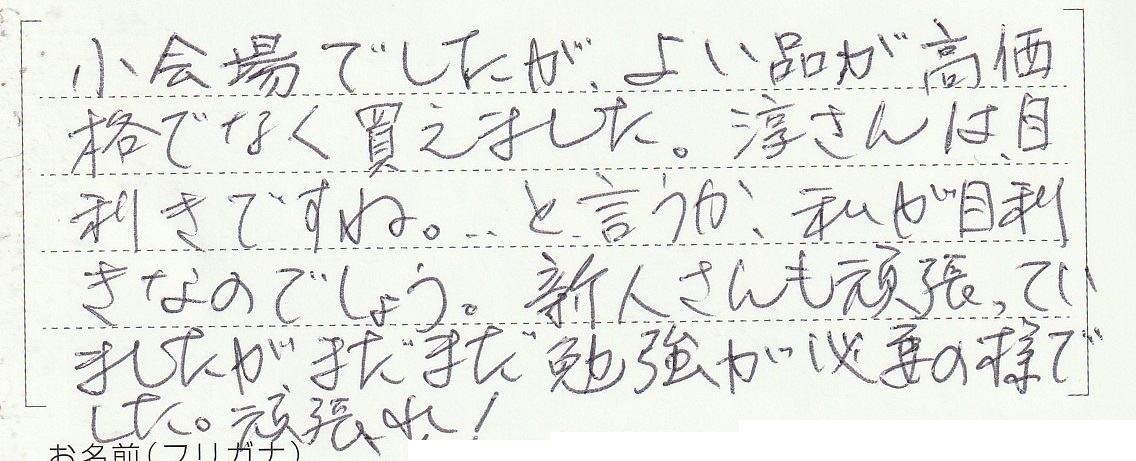 小会場でしたが、よい品が高価
格でなく買えました。淳さんは、目
利きですね。‥と言うか、私が目利
きなのでしょう。新人さんも頑張ってい
ましたが、まだまだ勉強が必要の様で
した。頑張れ!
お名前(フリガナ)